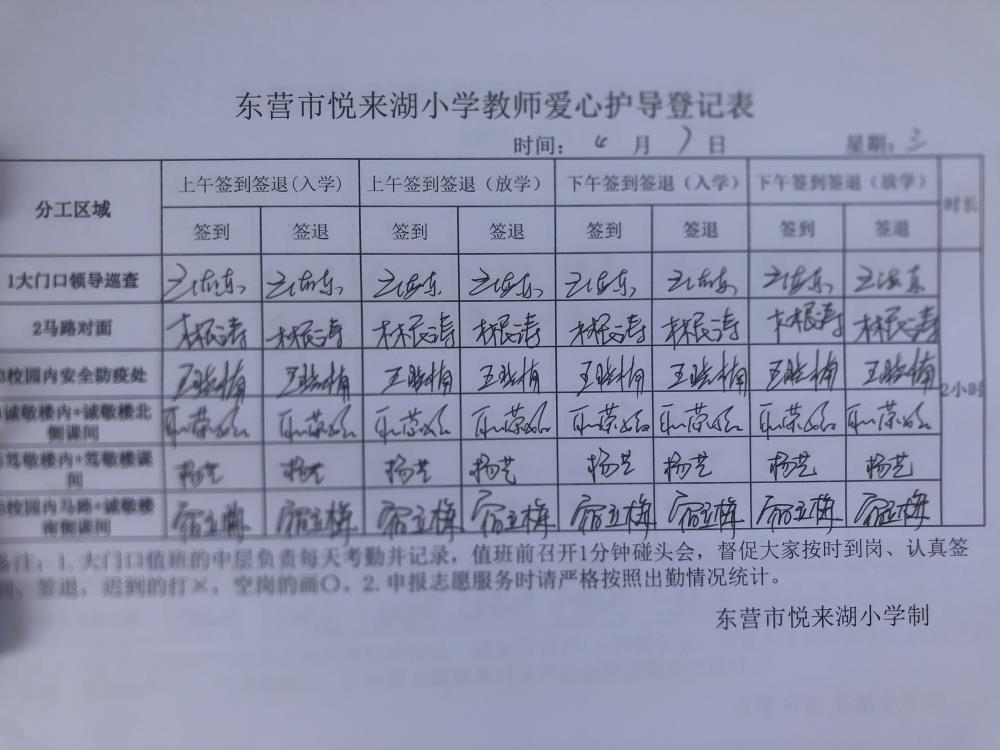 东营市悦来湖小学教师爱心护导登记表
时间： 4 月 7 日 星期：三
分工区域 上午签到签退(入学) 上午签到签退（放学） 下午签到签退（入学） 下午签到签退（放学） 时长
签到 签退 签到 签退 签到 签退 签到 签退
1大门口领导巡查
2马路对面 林民涛 林民涛 林民涛 林民涛 林民涛 林民涛 林民涛 林民涛
3校园内安全防疫处 王晓楠 王晓楠 王晓楠 王晓楠 王晓楠 王晓楠 王晓楠 王晓楠
诚敬楼内+诚敬楼北
侧课间
2小时
笃敬楼内+笃敬楼课
间
杨芝 杨芝 杨芝 杨芝 杨芝 杨芝 杨芝 杨芝
校园内马路+诚敬楼
南侧课间
宿立梅 宿立梅 宿立梅 宿立梅 宿立梅 宿立梅 宿立梅 宿立梅
备注：1.大门口值班的中层负责每天考勤并记录，值班前召开1分钟碰头会，督促大家按时到岗、认真签
到、签退，迟到的打×，空岗的画〇。2.申报志愿服务时请严格按照出勤情况统计。
东营市悦来湖小学制